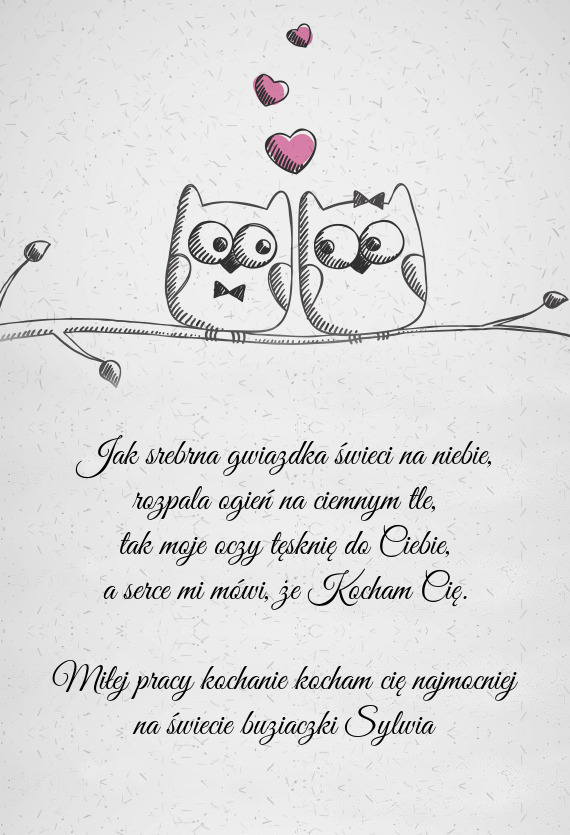 Jak srebrna gwiazdka świeci na niebie,
rozpala ogień na ciemnym tle,
tak moje oczy tęsknię do Ciebie,
a serce mi mówi, że Kocham Cię.
Miłej pracy kochanie kocham cię najmocniej
na świecie buziaczki Sylwia